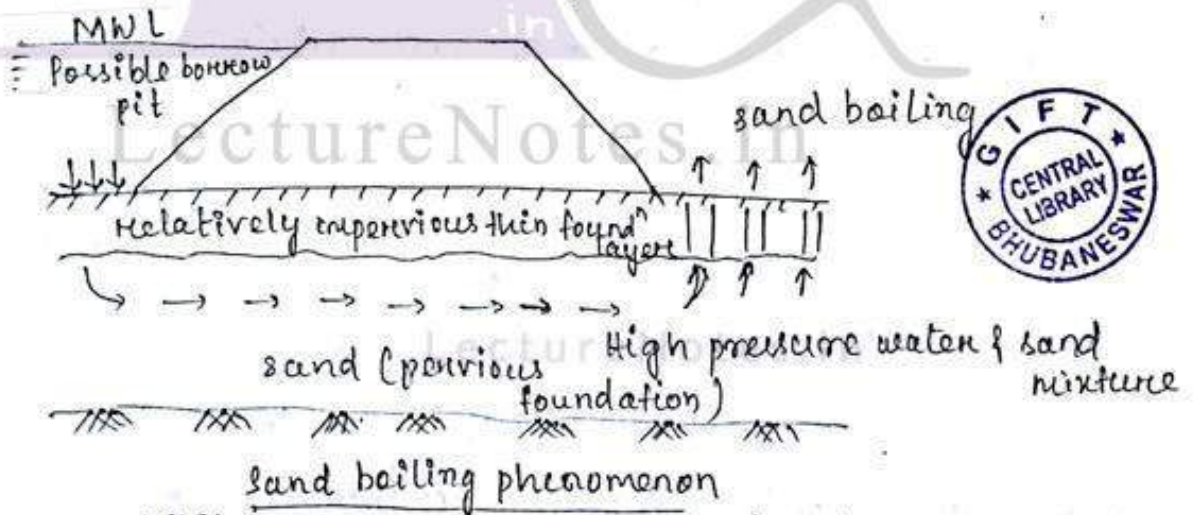 .in
MWL
Possible borrow
pit
LectureNotes.in
sand boiling
GIFT
CENTRAL
LIBRARY
BHUBANESWAR
Relatively impervious thin foundⁿ
layer
LectureNotes.in
High pressure water & sand
mixture
sand (pervious
foundation)
Sand boiling phenomenon